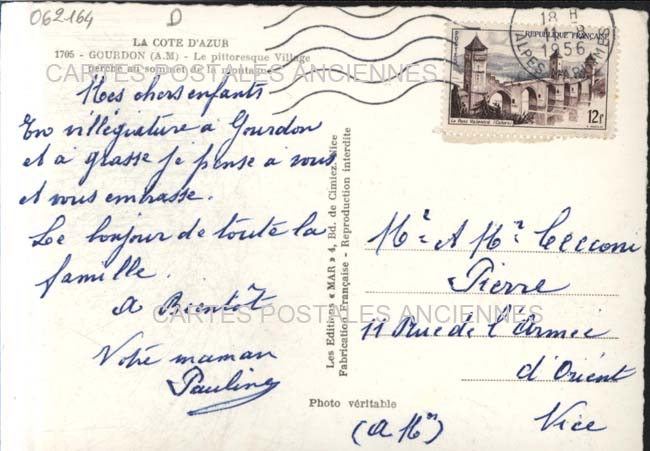 062164 D
LA COTE D'AZUR
1705 - GOURDON (A.M) - Le pittoresque Village
perché au sommet de la montagne
CARTES POSTALES ANCIENNES
Mes chers enfants
En villégiature à Gourdon
et à Grasse je pense à vous
et vous embrasse.
Le bonjour de toute la
famille.
A Bientôt
Votre maman
Pauline
Les Editions « MAR » 4, Bd. de Cimiez, Nice
Fabrication Française - Reproduction interdite
Photo véritable
18 H
1956
ALPES MARITIMES
REPUBLIQUE FRANÇAISE
POSTES
Le Pont Valentré (Cahors)
12f
Mr A Mr Cecconi
Pierre
11 Rue de l'Armée
d'Orient
Nice
(A Mm)
CARTES POSTALES ANCIENNES